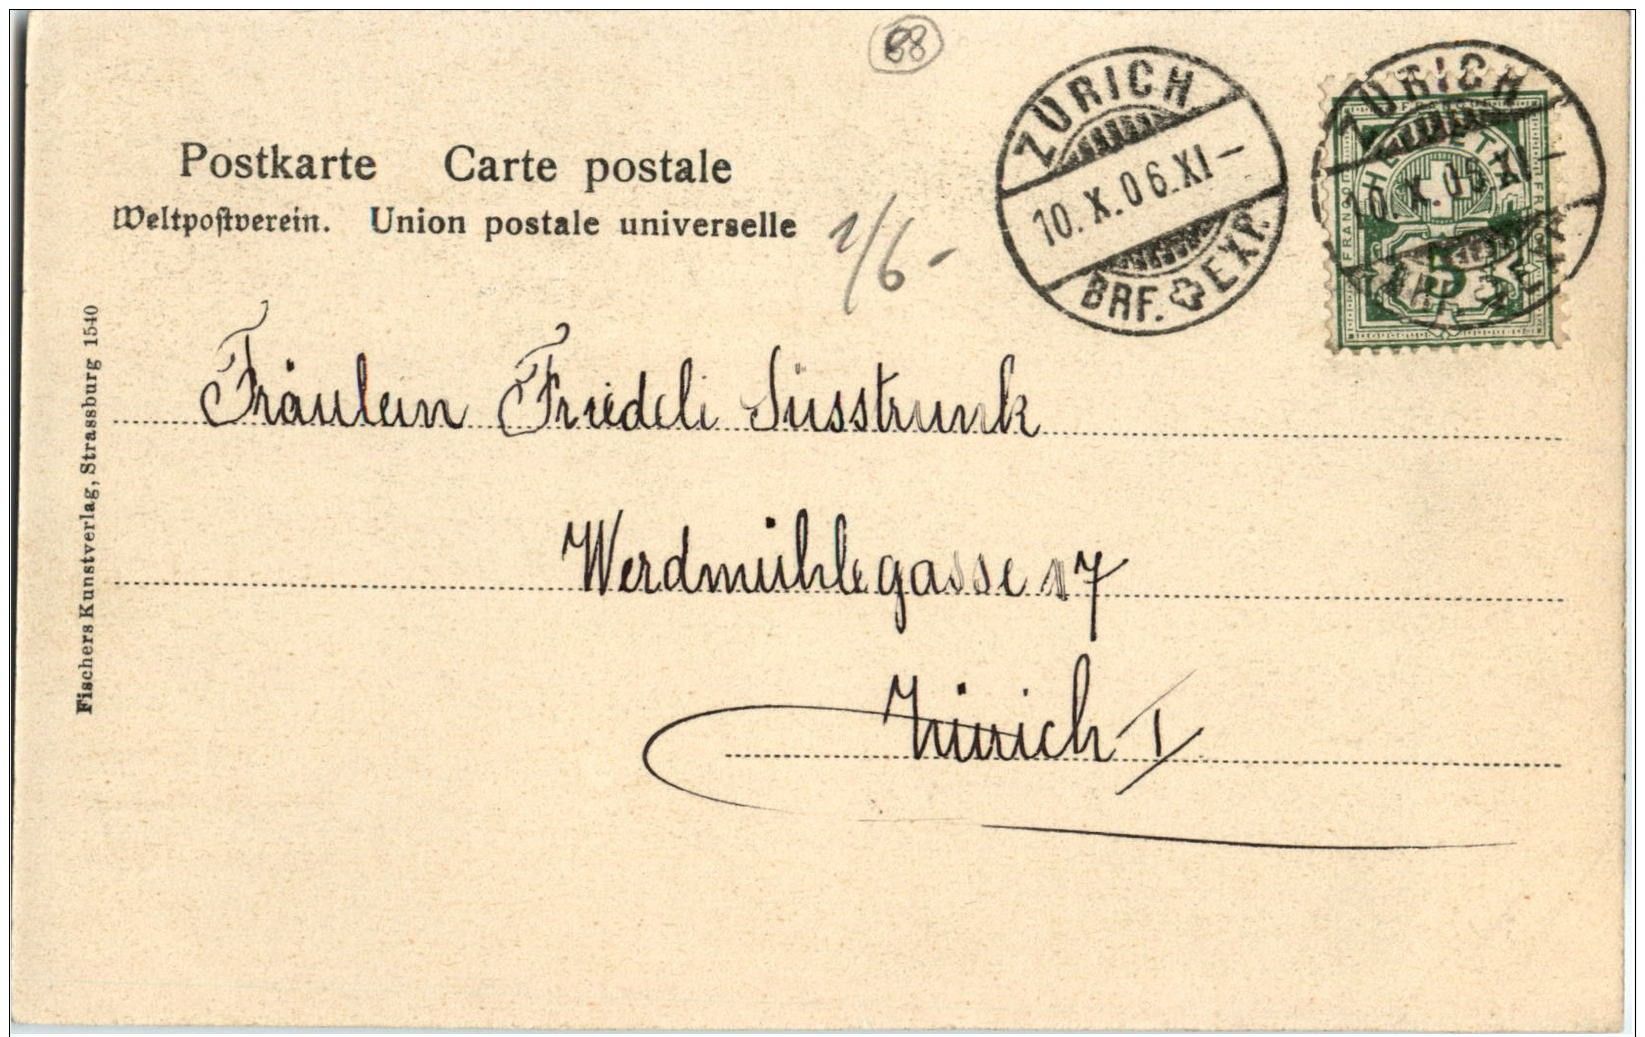 88
ZÜRICH
10. X. 06. XI –
BRF. EXP.
ZÜRICH
10. X. 06. XI –
BRF. EXP.
HELVETIA
FRANCO
5
Postkarte Carte postale
Weltpostverein. Union postale universelle
1/6 -
Fräulein Friedeli Süsstrunk
Werdmühlegasse 17
Zürich I
Fischers Kunstverlag, Strassburg 1540